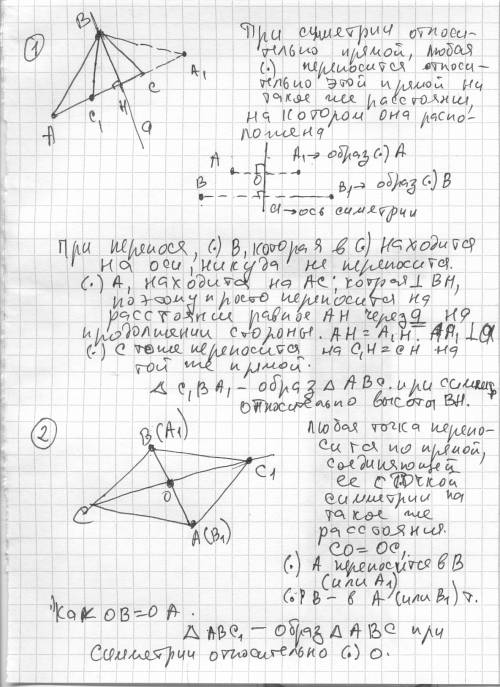 1
B
A
C₁
H
C
A₁
a
При симетрии относи-
тельно прямой, любая
(.) переносится относи-
тельно этой прямой на
такое же расстояние,
на котором она распо-
ложена
A
O
A₁→ образ (.) A
B
B₁→ образ (.) B
a→ось симетрии
При переносе, (.) B, которая в (.) находится
на оси, никуда не переносится.
(.) A, находится на AC, котрая ⊥ BH,
поэтому просто переносится на
расстояние равное AH через a на
продолжении стороны. AH = A₁H. AA₁ ⊥ a
(.) C тоже переносится на C₁H = CH на
той же прямой.
Δ C₁BA₁ – образ Δ ABC. при симетр
относительно высоты BH.
2
B(A₁)
C
O
C₁
A(B₁)
Любая точка перено-
сится по прямой,
соединяющей
ее с точкой
симетрии на
такое же
расстояния.
CO = OC₁
(.) A переносится в B
(или A₁)
B – в A (или B₁) т.
как OB = OA.
Δ ABC₁ – образ Δ ABC при
симетрии относительно (.) O.